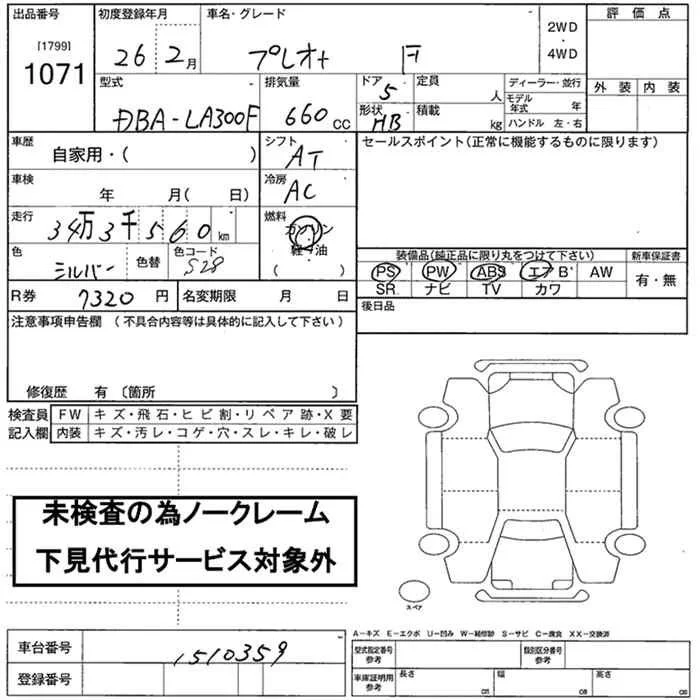 出品番号 初度登録年月 車名・グレード 評価点
[1799] 1071 26 2月 プレオ+ F 2WD・4WD
型式 排気量 ドア 定員 ディーラー・並行 外装 内装
DBA-LA300F 660 CC 5 人 モデル年式 年
形状 HB 積載 kg ハンドル 左・右
車歴 自家用・( ) シフト AT セールスポイント(正常に機能するものに限ります)
車検 年 月( 日) 冷房 AC
走行 34万3千560km 燃料 ガソリン 軽油 ( )
色 シルバー 色替 色コード S28
装備品(純正品に限り丸をつけて下さい) 新車保証書
PS PW ABS エアB AW 有・無
SR ナビ TV カワ
R券 7320 円 名変期限 月 日 後日品
注意事項申告欄 (不具合内容等は具体的に記入して下さい)
修復歴 有 〔箇所 〕
検査員記入欄 FW キズ・飛石・ヒビ割・リペア跡・X要
内装 キズ・汚レ・コゲ・穴・スレ・キレ・破レ
未検査の為ノークレーム
下見代行サービス対象外
スペア
A-キズ E-エクボ U-凹み W-補修跡 S-サビ C-腐食 XX-交換済
車台番号 1510359 型式指定番号 参考 類別区分番号 参考
登録番号 車庫証明用 参考 長さ cm 幅 cm 高さ cm